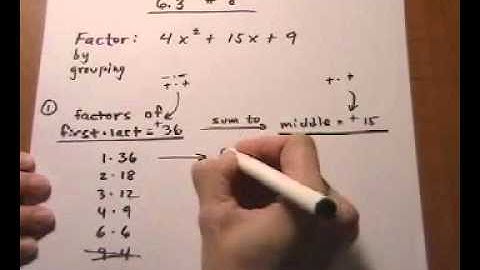 6.3 #
Factor: 4x² + 15x + 9
by
grouping
-·- +·+
+·+
① factors of
first·last = +36 sum to middle = +15
1·36
2·18
3·12
4·9
6·6
9·4